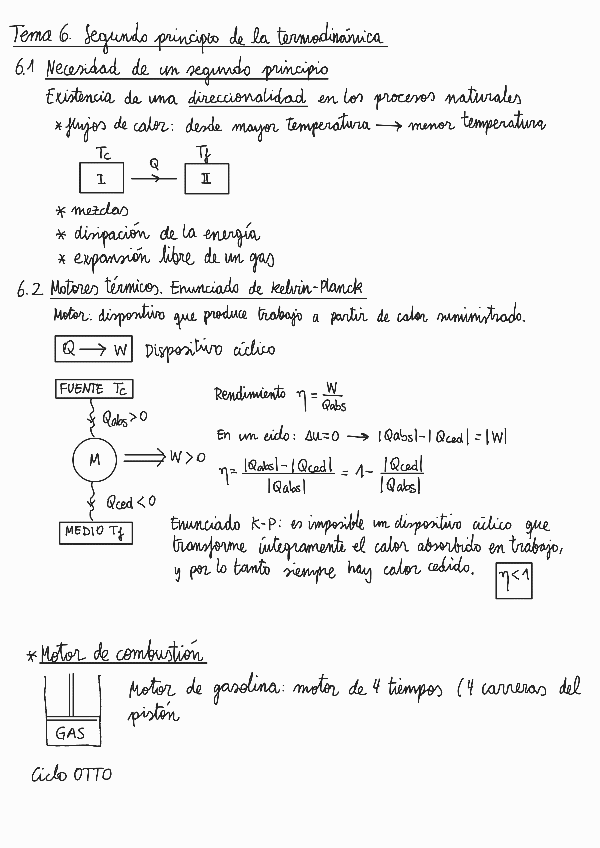 Tema 6. Segundo principio de la termodinámica
6.1 Necesidad de un segundo principio
Existencia de una direccionalidad en los procesos naturales
* flujos de calor: desde mayor temperatura → menor temperatura
Tc Q Tf
I → II
* mezclas
* disipación de la energía
* expansión libre de un gas
6.2 Motores térmicos. Enunciado de Kelvin-Planck
Motor: dispositivo que produce trabajo a partir de calor suministrado.
Q → W Dispositivo cíclico
FUENTE Tc
Qabs > 0
M ⇒ W > 0
Qced < 0
MEDIO Tf
Rendimiento η = W/Qabs
En un ciclo: ΔU=0 → |Qabs|-|Qced| = |W|
η = (|Qabs|-|Qced|)/|Qabs| = 1 - |Qced|/|Qabs|
Enunciado K-P: es imposible un dispositivo cíclico que
transforme íntegramente el calor absorbido en trabajo,
y por lo tanto siempre hay calor cedido. η < 1
* Motor de combustión
GAS
Motor de gasolina: motor de 4 tiempos (4 carreras del
pistón
Ciclo OTTO